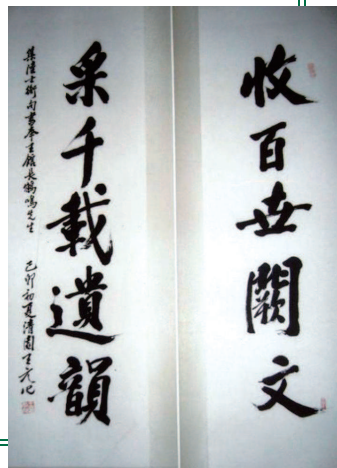 收百世闕文
采千載遺韻
集陸士衡句書奉王館長鶴鳴先生 己卯初夏清園王元化